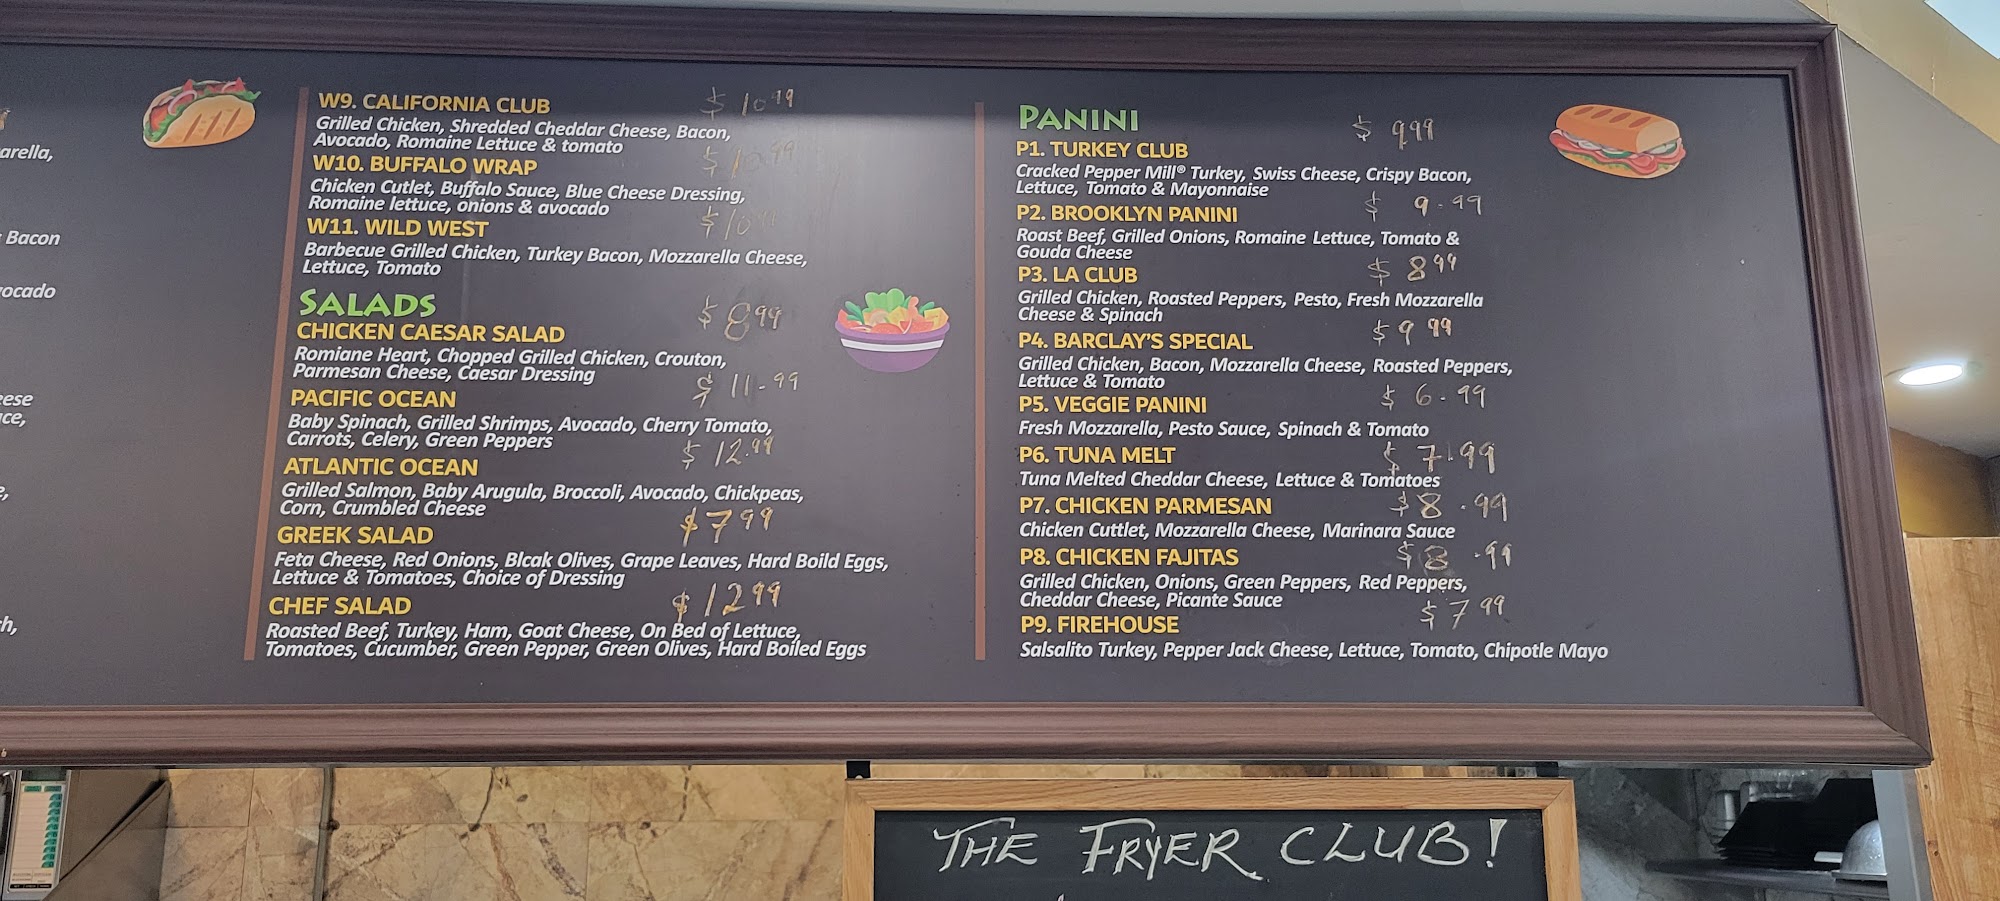 arella,
Bacon
ocado
eese
ce,
W9. CALIFORNIA CLUB $ 10.99
Grilled Chicken, Shredded Cheddar Cheese, Bacon,
Avocado, Romaine Lettuce & tomato
W10. BUFFALO WRAP $ 10.99
Chicken Cutlet, Buffalo Sauce, Blue Cheese Dressing,
Romaine lettuce, onions & avocado
W11. WILD WEST
Barbecue Grilled Chicken, Turkey Bacon, Mozzarella Cheese,
Lettuce, Tomato
SALADS
CHICKEN CAESAR SALAD $ 8.99
Romiane Heart, Chopped Grilled Chicken, Crouton,
Parmesan Cheese, Caesar Dressing
PACIFIC OCEAN $ 11-99
Baby Spinach, Grilled Shrimps, Avocado, Cherry Tomato,
Carrots, Celery, Green Peppers
ATLANTIC OCEAN $ 12.99
Grilled Salmon, Baby Arugula, Broccoli, Avocado, Chickpeas,
Corn, Crumbled Cheese
GREEK SALAD $7 99
Feta Cheese, Red Onions, Blcak Olives, Grape Leaves, Hard Boild Eggs,
Lettuce & Tomatoes, Choice of Dressing
CHEF SALAD $ 12 99
Roasted Beef, Turkey, Ham, Goat Cheese, On Bed of Lettuce,
Tomatoes, Cucumber, Green Pepper, Green Olives, Hard Boiled Eggs
PANINI
P1. TURKEY CLUB $ 9.99
Cracked Pepper Mill® Turkey, Swiss Cheese, Crispy Bacon,
Lettuce, Tomato & Mayonnaise
P2. BROOKLYN PANINI $ 9-99
Roast Beef, Grilled Onions, Romaine Lettuce, Tomato &
Gouda Cheese
P3. LA CLUB $ 8 99
Grilled Chicken, Roasted Peppers, Pesto, Fresh Mozzarella
Cheese & Spinach
P4. BARCLAY'S SPECIAL $ 9 99
Grilled Chicken, Bacon, Mozzarella Cheese, Roasted Peppers,
Lettuce & Tomato
P5. VEGGIE PANINI $ 6-99
Fresh Mozzarella, Pesto Sauce, Spinach & Tomato
P6. TUNA MELT $ 7.99
Tuna Melted Cheddar Cheese, Lettuce & Tomatoes
P7. CHICKEN PARMESAN $8.99
Chicken Cuttlet, Mozzarella Cheese, Marinara Sauce
P8. CHICKEN FAJITAS $8.99
Grilled Chicken, Onions, Green Peppers, Red Peppers,
Cheddar Cheese, Picante Sauce
P9. FIREHOUSE $ 7 99
Salsalito Turkey, Pepper Jack Cheese, Lettuce, Tomato, Chipotle Mayo
THE FRYER CLUB!